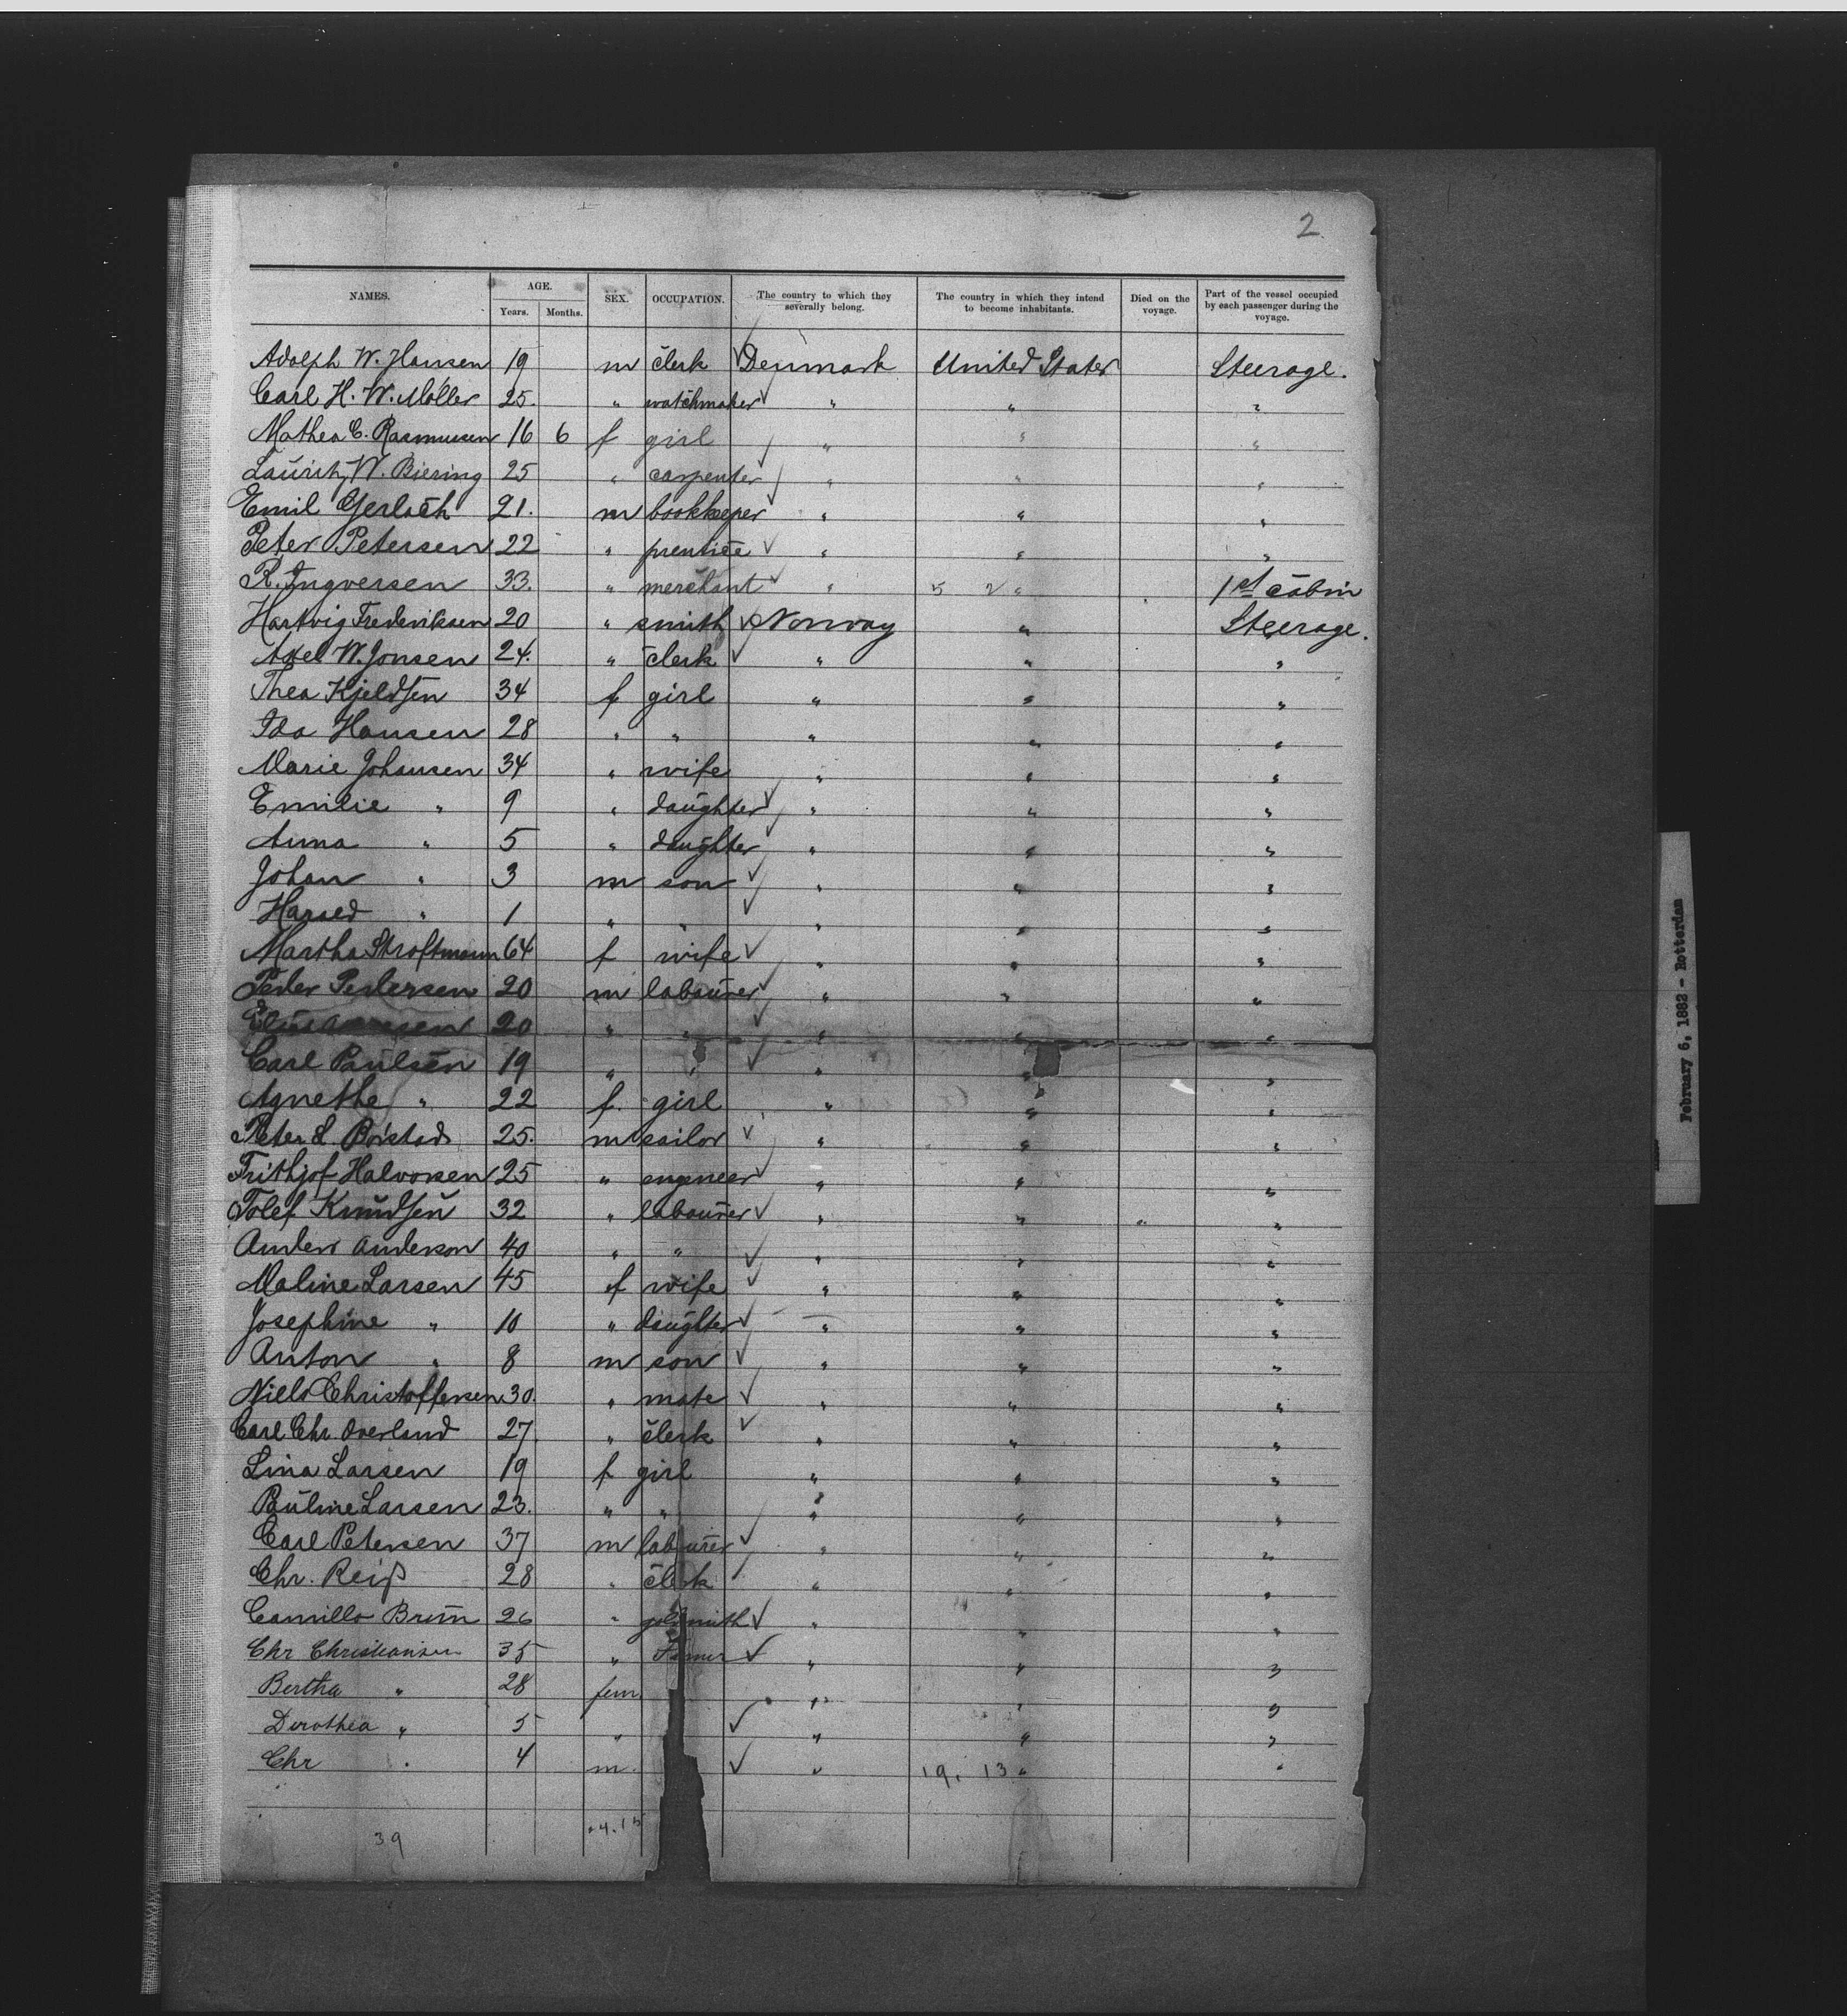 2
NAMES. AGE. Years. Months. SEX. OCCUPATION. The country to which they severally belong. The country in which they intend to become inhabitants. Died on the voyage. Part of the vessel occupied by each passenger during the voyage.
Adolph W. Hansen 19 m clerk Denmark United States Steerage.
Carl H. W. Möller 25. " watchmaker " " "
Mathea C. Rasmussen 16 6 f girl " " "
Lauritz W. Biering 25 " carpenter " " "
Emil Gerlach 21. m bookkeeper " " "
Peter Petersen 22 " prentice " " "
R. Ingversen 33. " merchant " 5 2 " 1st cabin
Hartvig Frederiksen 20 " smith Norway " Steerage.
Axel W. Jonsen 24. " clerk " " "
Thea Kjeldsen 34 f girl " " "
Ida Hansen 28 " " " " "
Marie Johansen 34 " wife " " "
Emilie " 9 " daughter " " "
Anna " 5 " daughter " " "
Johan " 3 m son " " "
Harald " 1 " " " " "
Martha 64 f wife " " "
Peder Pedersen 20 m labourer " " "
20 " " " " "
Carl Paulsen 19 " " " " "
Agnethe " 22 f. girl " " "
Peter L. Borstad 25. m sailor " " "
Frithjof Halvorsen 25 " engineer " " "
Tolef Knudsen 32 " labourer " " " "
Anders Anderson 40 " " " " "
Maline Larsen 45 f wife " " "
Josephine " 10 " daughter " " "
Anton " 8 m son " " "
Niels Christoffersen 30. " mate " " "
Carl Chr. Overland 27. " clerk " " "
Lina Larsen 19 f girl " " "
Pauline Larsen 23. " " " " "
Carl Petersen 37 m labourer " " "
Chr. Reiß 28 " clerk " " "
Camillo Brun 26 " goldsmith " " "
Chr Christiansen 35 " " " "
Bertha " 28 fem " " "
Dorothea " 5 " " " "
Chr " 4 m. " 19. 13 " "
39
February 6, 1882 - Rotterdam